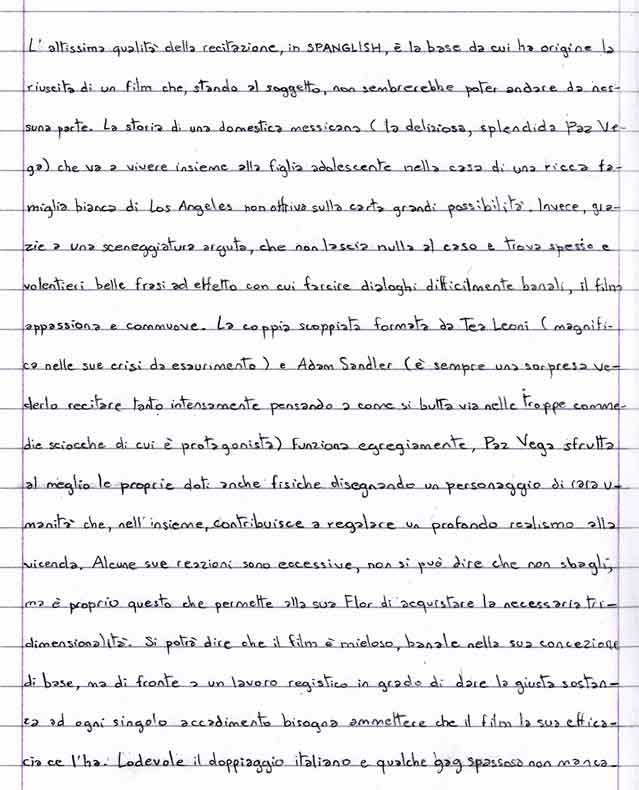 L'altissima qualità della recitazione, in SPANGLISH, è la base da cui ha origine la
riuscita di un film che, stando al soggetto, non sembrerebbe poter andare da nes-
suna parte. La storia di una domestica messicana (la deliziosa, splendida Paz Ve-
ga) che va a vivere insieme alla figlia adolescente nella casa di una ricca fa-
miglia bianca di Los Angeles non offriva sulla carta grandi possibilità. Invece, gra-
zie a una sceneggiatura arguta, che non lascia nulla al caso e trova spesso e
volentieri belle frasi ad effetto con cui farcire dialoghi difficilmente banali, il film
appassiona e commuove. La coppia scoppiata formata da Tea Leoni (magnifi-
ca nelle sue crisi da esaurimento) e Adam Sandler (è sempre una sorpresa ve-
derlo recitare tanto intensamente pensando a come si butta via nelle troppe comme-
die sciocche di cui è protagonista) funziona egregiamente, Paz Vega sfrutta
al meglio le proprie doti anche fisiche disegnando un personaggio di rara u-
manità che, nell'insieme, contribuisce a regalare un profondo realismo alla
vicenda. Alcune sue reazioni sono eccessive, non si può dire che non sbagli,
ma è proprio questo che permette alla sua Flor di acquistare la necessaria tri-
dimensionalità. Si potrà dire che il film è mieloso, banale nella sua concezione
di base, ma di fronte a un lavoro registico in grado di dare la giusta sostan-
za ad ogni singolo accadimento bisogna ammettere che il film la sua effica-
cia ce l'ha. Lodevole il doppiaggio italiano e qualche gag spassosa non manca.